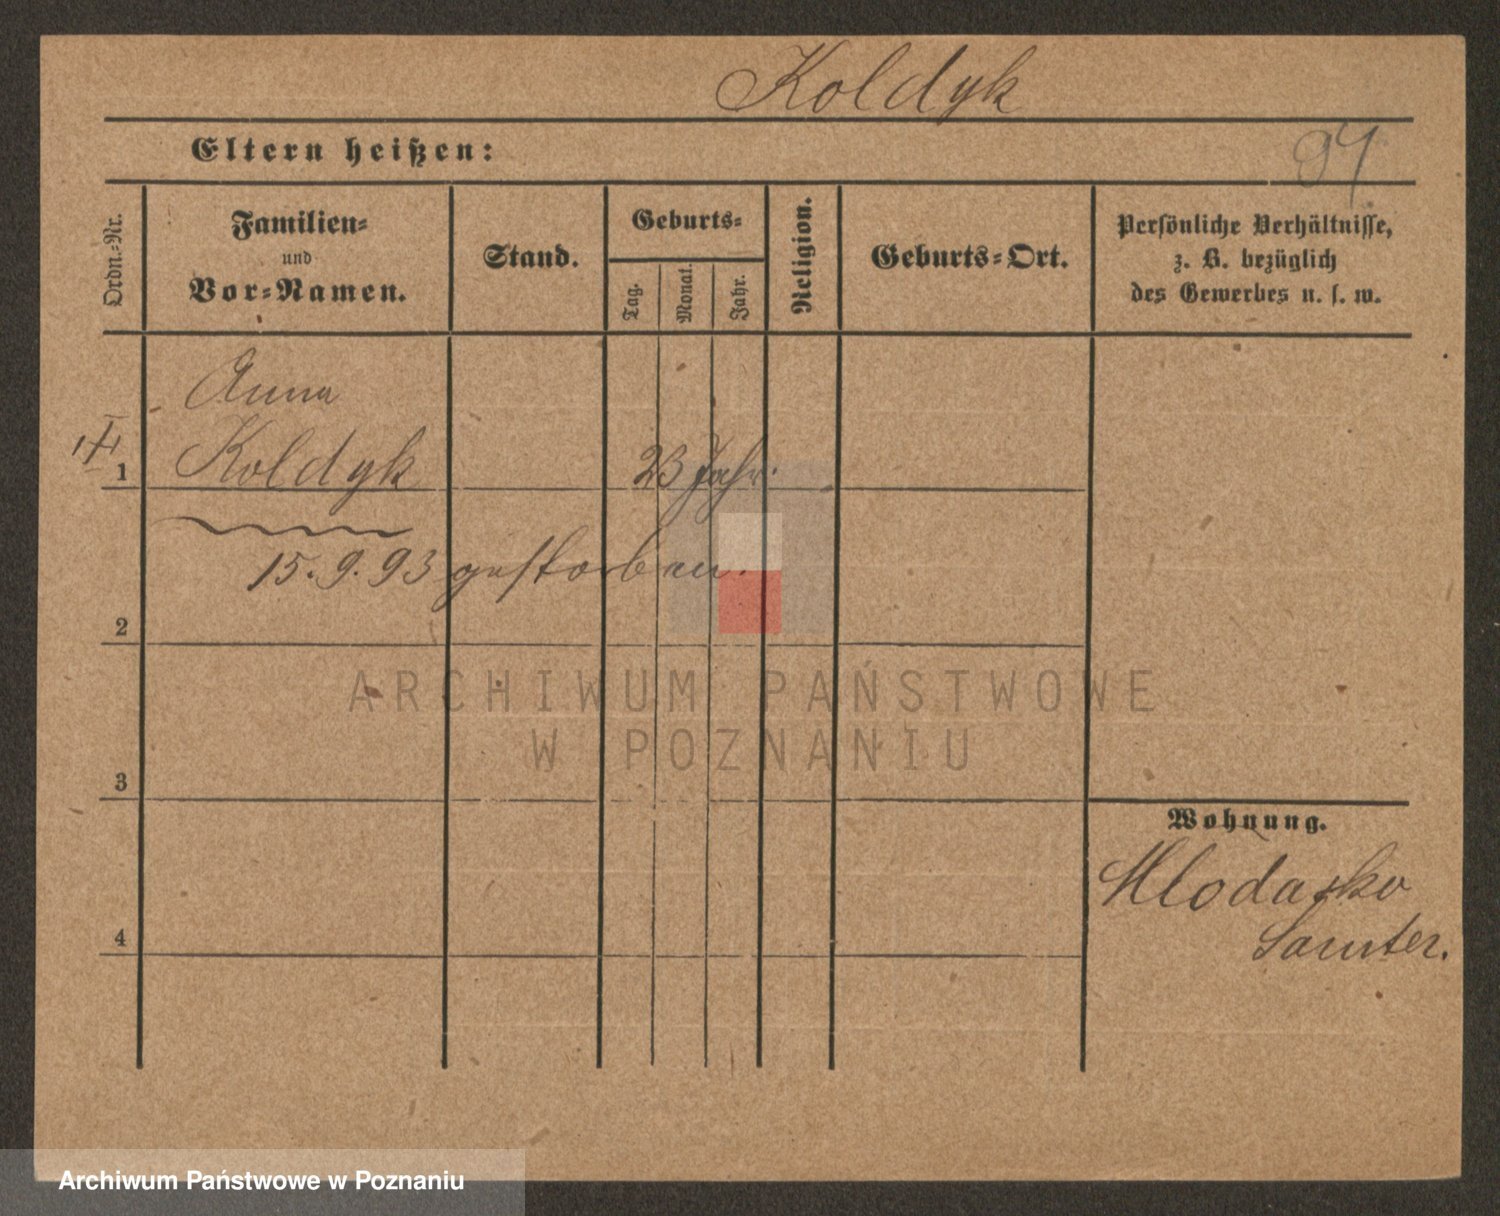 Koldyk
Eltern heißen:
94
Ordn.-Nr.
Familien-
und
Vor-Namen.
Stand.
Geburts-
Tag.
Monat.
Jahr.
Religion.
Geburts-Ort.
Persönliche Verhältnisse,
z. B. bezüglich
des Gewerbes u. s. w.
Anna
1 Koldyk 23 Jahr.
15. 9. 93 gestorben.
2
ARCHIWUM PAŃSTWOWE
W POZNANIU
3
Wohnung.
Mlodasko
Samter.
4
Archiwum Państwowe w Poznaniu